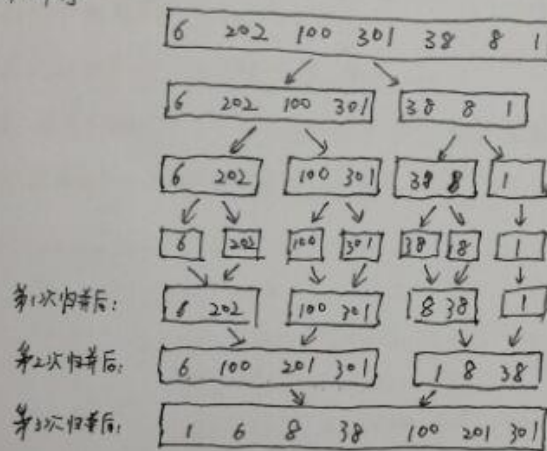 6 202 100 301 38 8 1
6 202 100 301 38 8 1
6 202 100 301 38 8 1
6 202 100 301 38 8 1
第1次归并后: 6 202 100 301 8 38 1
第2次归并后: 6 100 201 301 1 8 38
第3次归并后: 1 6 8 38 100 201 301